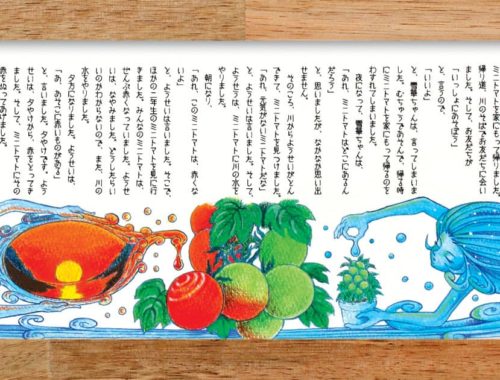 ミニトマトを家にもって帰りました。
帰り道、川のそばでお友だちに会い
ました。そして、お友だちが
「いっしょにあそぼう」
と、言うので、
「いいよ」
と、雪華ちゃんは、言ってしまいま
した。むちゅうであそんで、帰る時
にミニトマトを家にもって帰るのを
わすれてしまいました。
夜になって、雪華ちゃんは、
「あれ、ミニトマトはどこにあるん
だろう」
と、思いましたが、なかなか思い出
せません。
そのころ、川からようせいがとん
できて、ミニトマトを見つけました。
「あれ、元気がないミニトマトだな」
と、ようせいは言いました。そして、
ようせいは、ミニトマトに川の水を
やりました。
朝になり、
「あれ、このミニトマトは、赤くな
いよ」
と、ようせいは言いました。そこで、
ほかの二年生のミニトマトを見に行
きました。みんなのミニトマトは、
ぜんぶ赤くなっていました。ようせ
いは、なやみました。どうしたらい
いのかわからないので、また、川の
水をやりました。
夕方になりました。ようせいは、
「あ、あそこに赤いものがある」
と、言いました。夕やけです。よう
せいは、夕やけから、赤をとってき
ました。そして、ミニトマトにその
赤をぬってあげました。